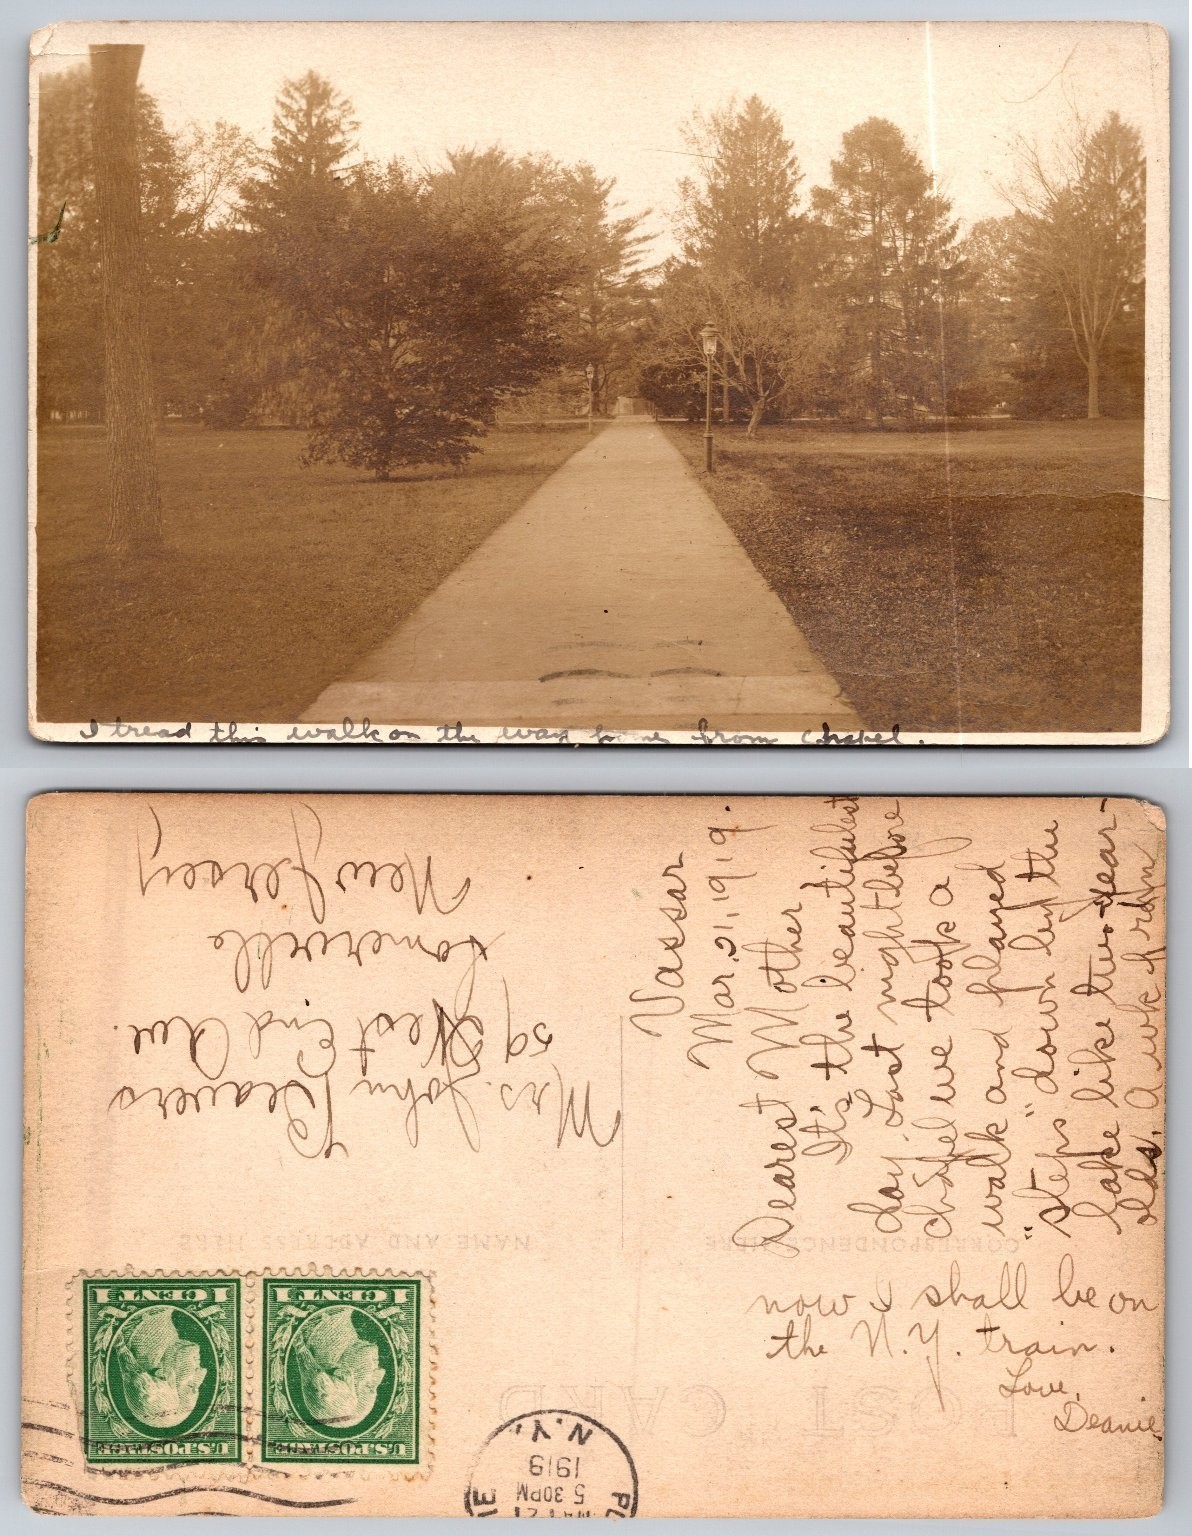 I tread this walk on the way home from chapel.
Vassar
Mar. 21, 1919.
Dearest Mother
It's the beautifulest
day. Last night before
chapel we took a
walk and played
"steps" down by the
lake like two-year-
olds. A wk from
now I shall be on
the N.Y. train.
Love,
Deanie
Mrs. John Beavers
59 West End Ave.
Somerville
New Jersey
POST CARD
CORRESPONDENCE HERE
NAME AND ADDRESS HERE
U.S. POSTAGE
1 CENT 1
U.S. POSTAGE
1 CENT 1
5 30 PM
1919
N.Y.